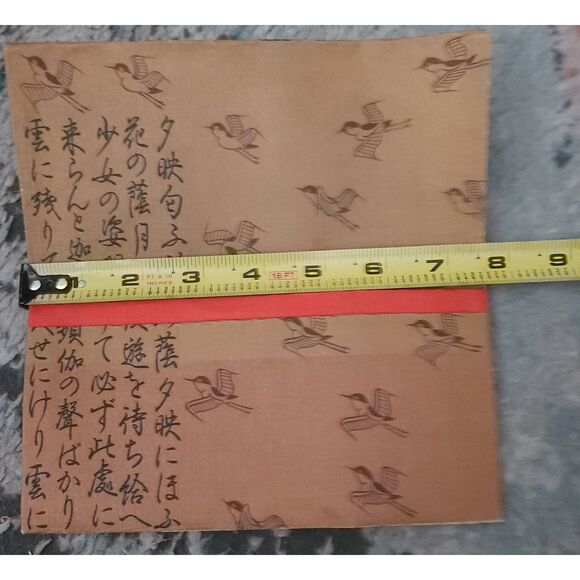 夕映匂ふ
蔭夕映にほふ
花の蔭月
遊を待ち給へ
少女の姿
て必ず此處に
来らんと迦
頻伽の聲ばかり
雲に残りて
せにけり雲に
1 2 3 4 5 6 7 8 9
INCHES
16 FT